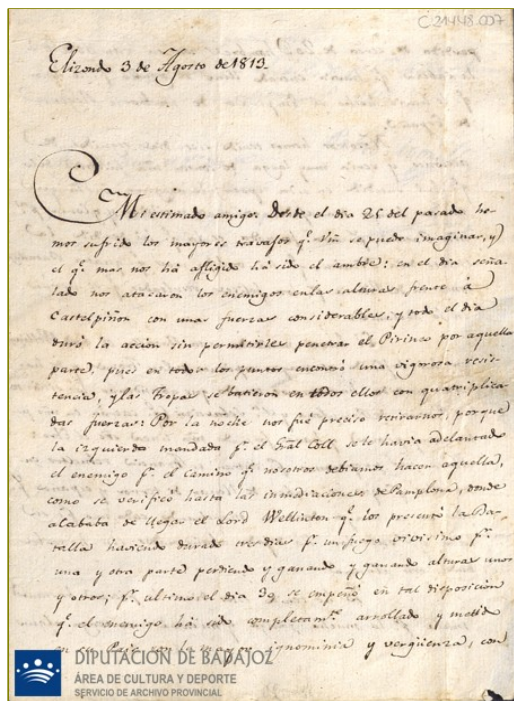 C 21448.007
Elizondo 3 de Agosto de 1813.
Mi estimado amigo: Desde el dia 25 del pasado he-
mos sufrido los mayores travajos q.e Vm se puede imaginar, y
el q.e mas nos há afligido há sido el ambre: en el dia seña-
lado nos atacaron los enemigos en las alturas frente á
Castelpiñon con unas fuerzas considerables, y todo el dia
duró la acción sin permitirles penetrar el Pirineo por aquella
parte, pues en todos los puntos encontró una vigorosa resis-
tencia, y las Tropas se batieron en todos ellos con quatriplica-
das fuerzas: Por la noche nos fué preciso retirarnos, porque
la izquierda mandada p.r el Gral Coll, se le havia adelantado
el enemigo p.r el camino q.e nosotros debiamos hacer aquella,
como se verificó hasta las inmediaciones de Pamplona, donde
acababa de llegar el Lord Wellinton q.e los presentó la Ba-
talla haviendo durado tres dias p.r un fuego vivisimo p.r
una y otra parte perdiendo y ganando y ganando alturas unos
y otros; p.r ultimo el dia 30 se empeñó en tal disposición
q.e el enemigo há sido completam.te arrollado y metido
en su Pais con la mayor ignominia y vergüenza, con
DIPUTACIÓN DE BADAJOZ
ÁREA DE CULTURA Y DEPORTE
SERVICIO DE ARCHIVO PROVINCIAL